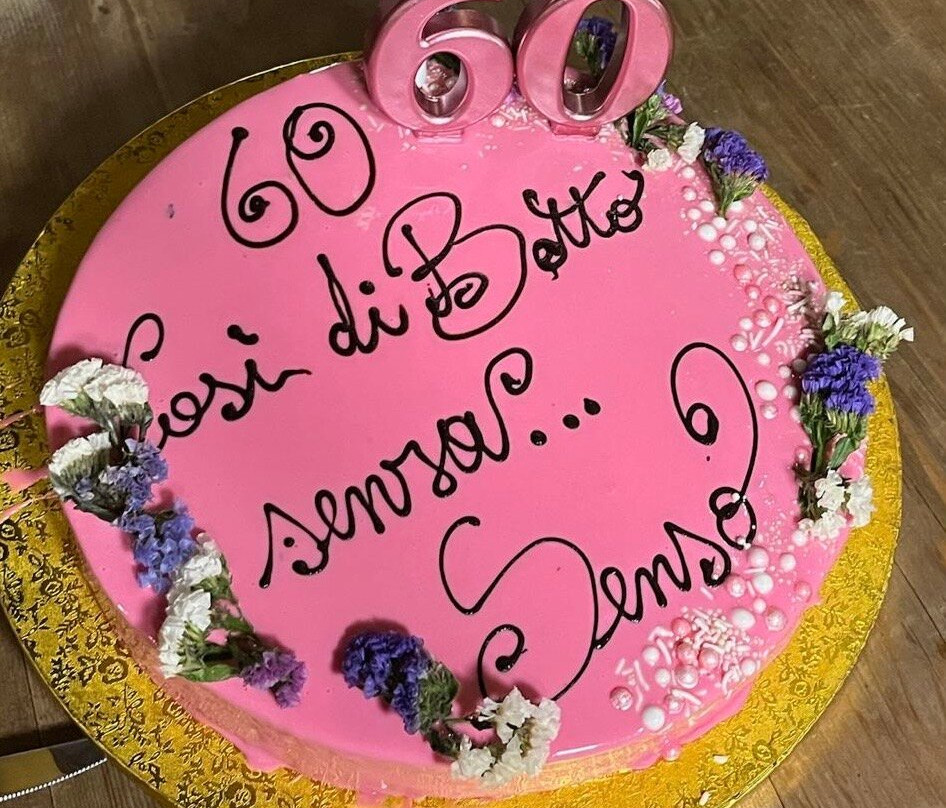 60
60
Così di Botto
senza...
Senso